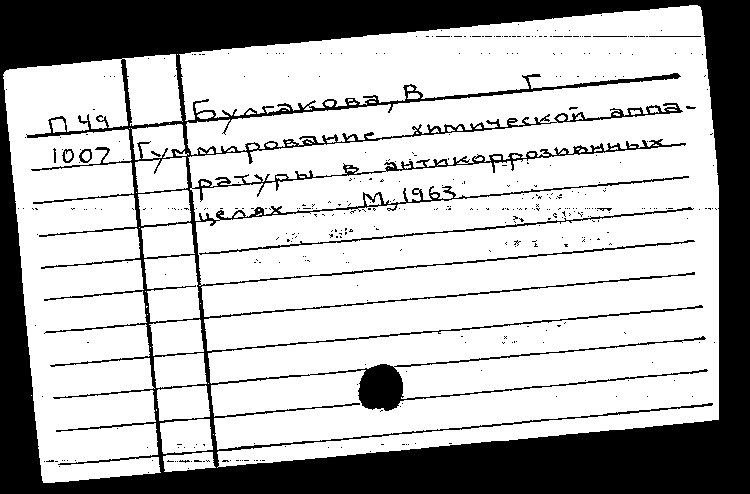 П 49 Булгакова, В Г
1007 Гуммирование химической аппа-
ратуры в антикоррозианных
целях М., 1963.